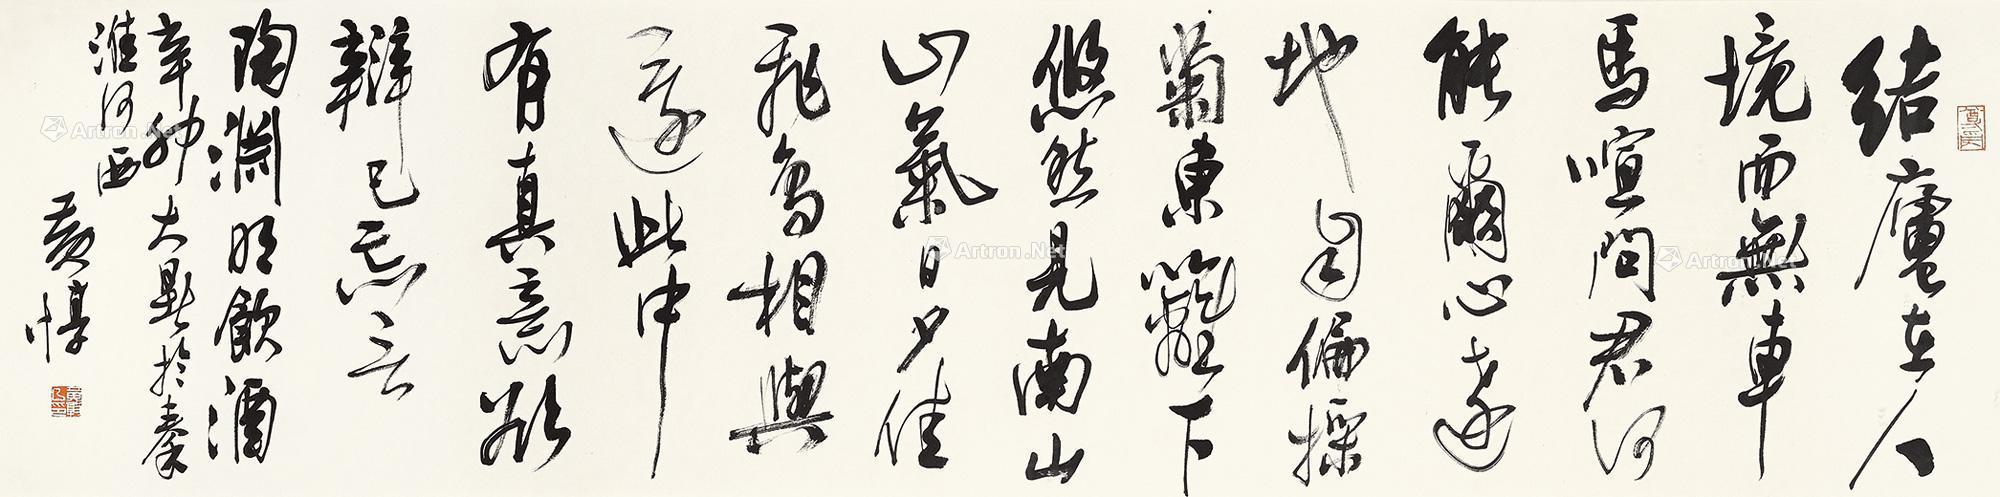 結廬在人
境而無車
馬喧問君何
能爾心遠
地自偏採
菊東籬下
悠然見南山
山氣日夕佳
飛鳥相與
還此中
有真意欲
辯已忘言
陶淵明飲酒
辛卯大暑於秦
淮河西
黃惇
Artron.Net
Artron.Net
Artron.Net